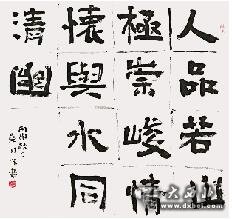 人品若山
極崇峻情
懷與水同
清幽